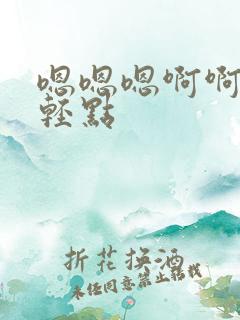 嗯嗯嗯啊啊
轻點
折花换酒
未经同意禁止转载